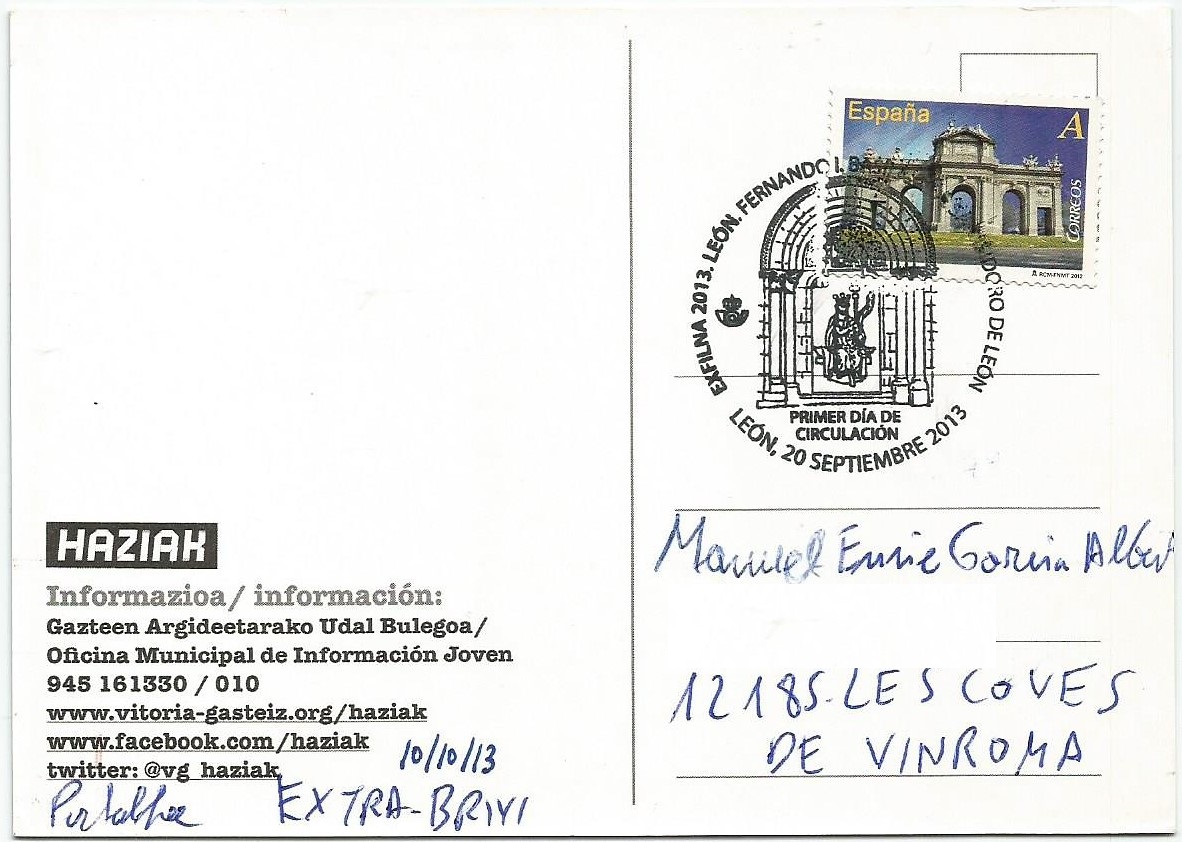 España A
CORREOS
RCM-FNMT 2012
EXFILNA 2013. LEÓN. FERNANDO I.
DORO DE LEÓN
PRIMER DÍA DE
CIRCULACIÓN
LEÓN, 20 SEPTIEMBRE 2013
HAZIAK
Informazioa/ información:
Gazteen Argideetarako Udal Bulegoa/
Oficina Municipal de Información Joven
945 161330 / 010
www.vitoria-gasteiz.org/haziak
www.facebook.com/haziak
twitter: @vg_haziak
10/10/13
EXTRA-BRIVI
Manuel Garcia
12185-LES COVES
DE VINROMA